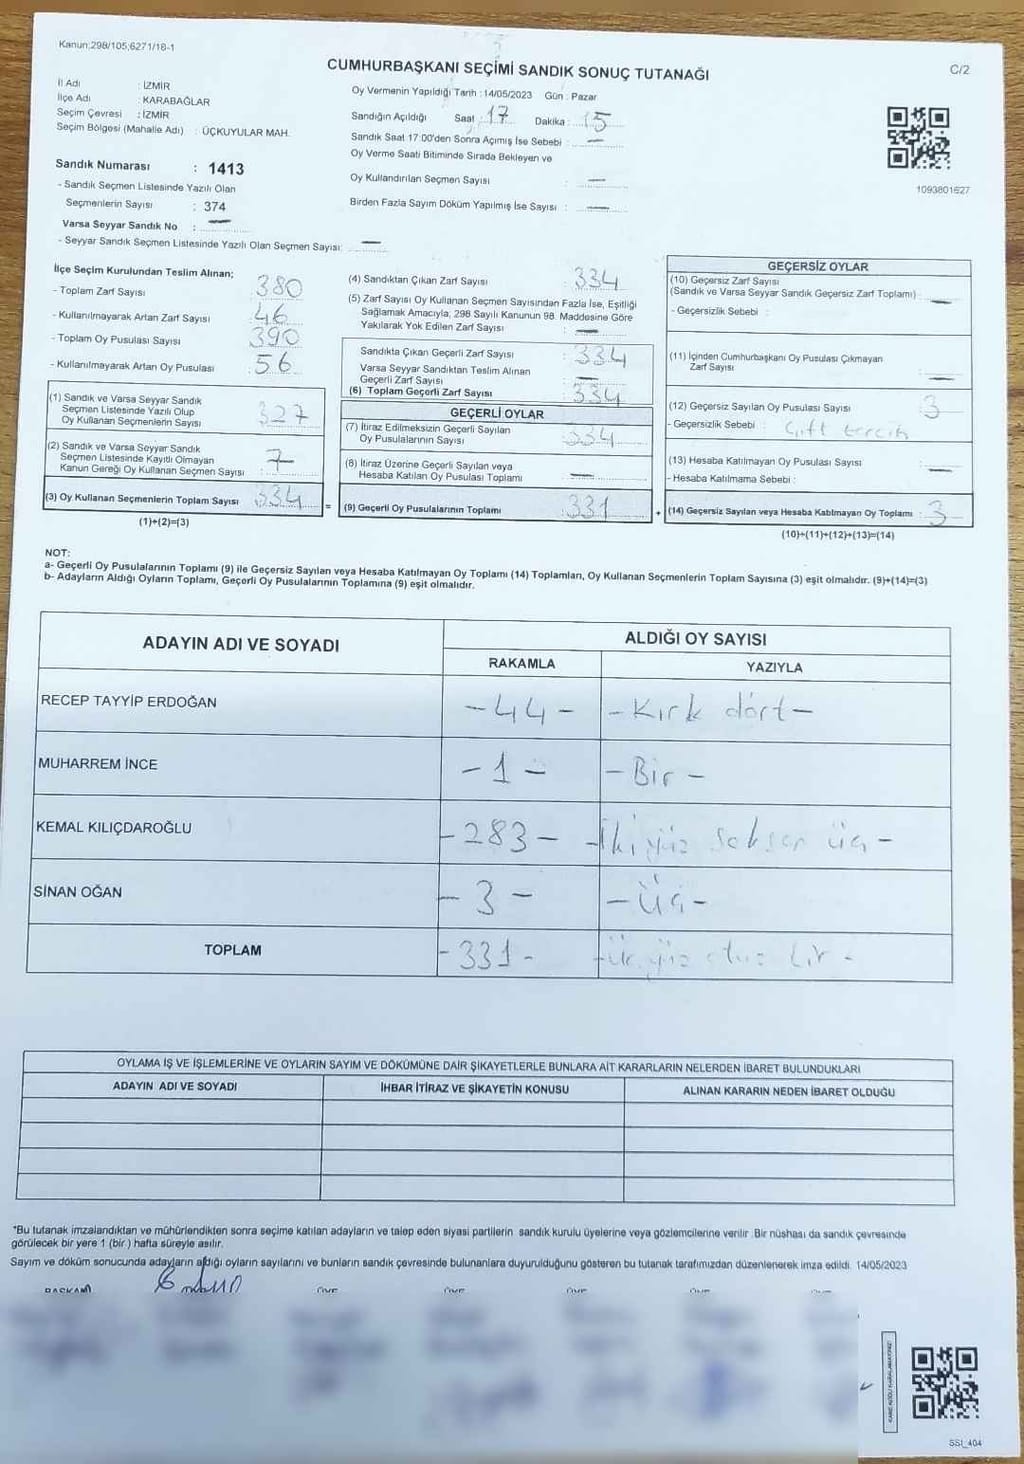 Kanun:298/105;6271/18-1
CUMHURBAŞKANI SEÇİMİ SANDIK SONUÇ TUTANAĞI
C/2
İl Adı : İZMİR
İlçe Adı : KARABAĞLAR
Seçim Çevresi : İZMİR
Seçim Bölgesi (Mahalle Adı) : ÜÇKUYULAR MAH.
Sandık Numarası : 1413
- Sandık Seçmen Listesinde Yazılı Olan
Seçmenlerin Sayısı : 374
Varsa Seyyar Sandık No : —
- Seyyar Sandık Seçmen Listesinde Yazılı Olan Seçmen Sayısı: —
Oy Vermenin Yapıldığı Tarih :14/05/2023 Gün : Pazar
Sandığın Açıldığı Saat : 17 Dakika : 15
Sandık Saat 17:00'den Sonra Açımış İse Sebebi : —
Oy Verme Saati Bitiminde Sırada Bekleyen ve
Oy Kullandırılan Seçmen Sayısı : —
Birden Fazla Sayım Döküm Yapılmış İse Sayısı : —
1093801627
İlçe Seçim Kurulundan Teslim Alınan;
- Toplam Zarf Sayısı : 380
- Kullanılmayarak Artan Zarf Sayısı : 46
- Toplam Oy Pusulası Sayısı : 390
- Kullanılmayarak Artan Oy Pusulası : 56
(1) Sandık ve Varsa Seyyar Sandık
Seçmen Listesinde Yazılı Olup
Oy Kullanan Seçmenlerin Sayısı : 327
(2) Sandık ve Varsa Seyyar Sandık
Seçmen Listesinde Kayıtlı Olmayan
Kanun Gereği Oy Kullanan Seçmen Sayısı : 7
(3) Oy Kullanan Seçmenlerin Toplam Sayısı : 334
(1)+(2)=(3)
(4) Sandıktan Çıkan Zarf Sayısı : 334
(5) Zarf Sayısı Oy Kullanan Seçmen Sayısından Fazla İse, Eşitliği
Sağlamak Amacıyla, 298 Sayılı Kanunun 98. Maddesine Göre
Yakılarak Yok Edilen Zarf Sayısı : —
Sandıkta Çıkan Geçerli Zarf Sayısı : 334
Varsa Seyyar Sandıktan Teslim Alınan
Geçerli Zarf Sayısı : —
(6) Toplam Geçerli Zarf Sayısı : 334
GEÇERLİ OYLAR
(7) İtiraz Edilmeksizin Geçerli Sayılan
Oy Pusulalarının Sayısı : 334
(8) İtiraz Üzerine Geçerli Sayılan veya
Hesaba Katılan Oy Pusulası Toplamı : —
= (9) Geçerli Oy Pusulalarının Toplamı : 331
GEÇERSİZ OYLAR
(10) Geçersiz Zarf Sayısı
(Sandık ve Varsa Seyyar Sandık Geçersiz Zarf Toplamı) : —
- Geçersizlik Sebebi :
(11) İçinden Cumhurbaşkanı Oy Pusulası Çıkmayan
Zarf Sayısı : —
(12) Geçersiz Sayılan Oy Pusulası Sayısı : 3
- Geçersizlik Sebebi : Çift tercih
(13) Hesaba Katılmayan Oy Pusulası Sayısı : —
- Hesaba Katılmama Sebebi :
+ (14) Geçersiz Sayılan veya Hesaba Katılmayan Oy Toplamı : 3
(10)+(11)+(12)+(13)=(14)
NOT:
a- Geçerli Oy Pusulalarının Toplamı (9) ile Geçersiz Sayılan veya Hesaba Katılmayan Oy Toplamı (14) Toplamları, Oy Kullanan Seçmenlerin Toplam Sayısına (3) eşit olmalıdır. (9)+(14)=(3)
b- Adayların Aldığı Oyların Toplamı, Geçerli Oy Pusulalarının Toplamına (9) eşit olmalıdır.
ADAYIN ADI VE SOYADI
ALDIĞI OY SAYISI
RAKAMLA YAZIYLA
RECEP TAYYİP ERDOĞAN -44- -Kırk dört-
MUHARREM İNCE -1- -Bir-
KEMAL KILIÇDAROĞLU -283- -İki yüz seksen üç-
SİNAN OĞAN -3- -Üç-
TOPLAM -331- -Üç yüz otuz bir-
OYLAMA İŞ VE İŞLEMLERİNE VE OYLARIN SAYIM VE DÖKÜMÜNE DAİR ŞİKAYETLERLE BUNLARA AİT KARARLARIN NELERDEN İBARET BULUNDUKLARI
ADAYIN ADI VE SOYADI İHBAR İTİRAZ VE ŞİKAYETİN KONUSU ALINAN KARARIN NEDEN İBARET OLDUĞU
*Bu tutanak imzalandıktan ve mühürlendikten sonra seçime katılan adayların ve talep eden siyasi partilerin sandık kurulu üyelerine veya gözlemcilerine verilir. Bir nüshası da sandık çevresinde
görülecek bir yere 1 (bir ) hafta süreyle asılır.
Sayım ve döküm sonucunda adayların aldığı oyların sayılarını ve bunların sandık çevresinde bulunanlara duyurulduğunu gösteren bu tutanak tarafımızdan düzenlenerek imza edildi. 14/05/2023
BAŞKAN ÜYE ÜYE ÜYE ÜYE ÜYE
SSI_404